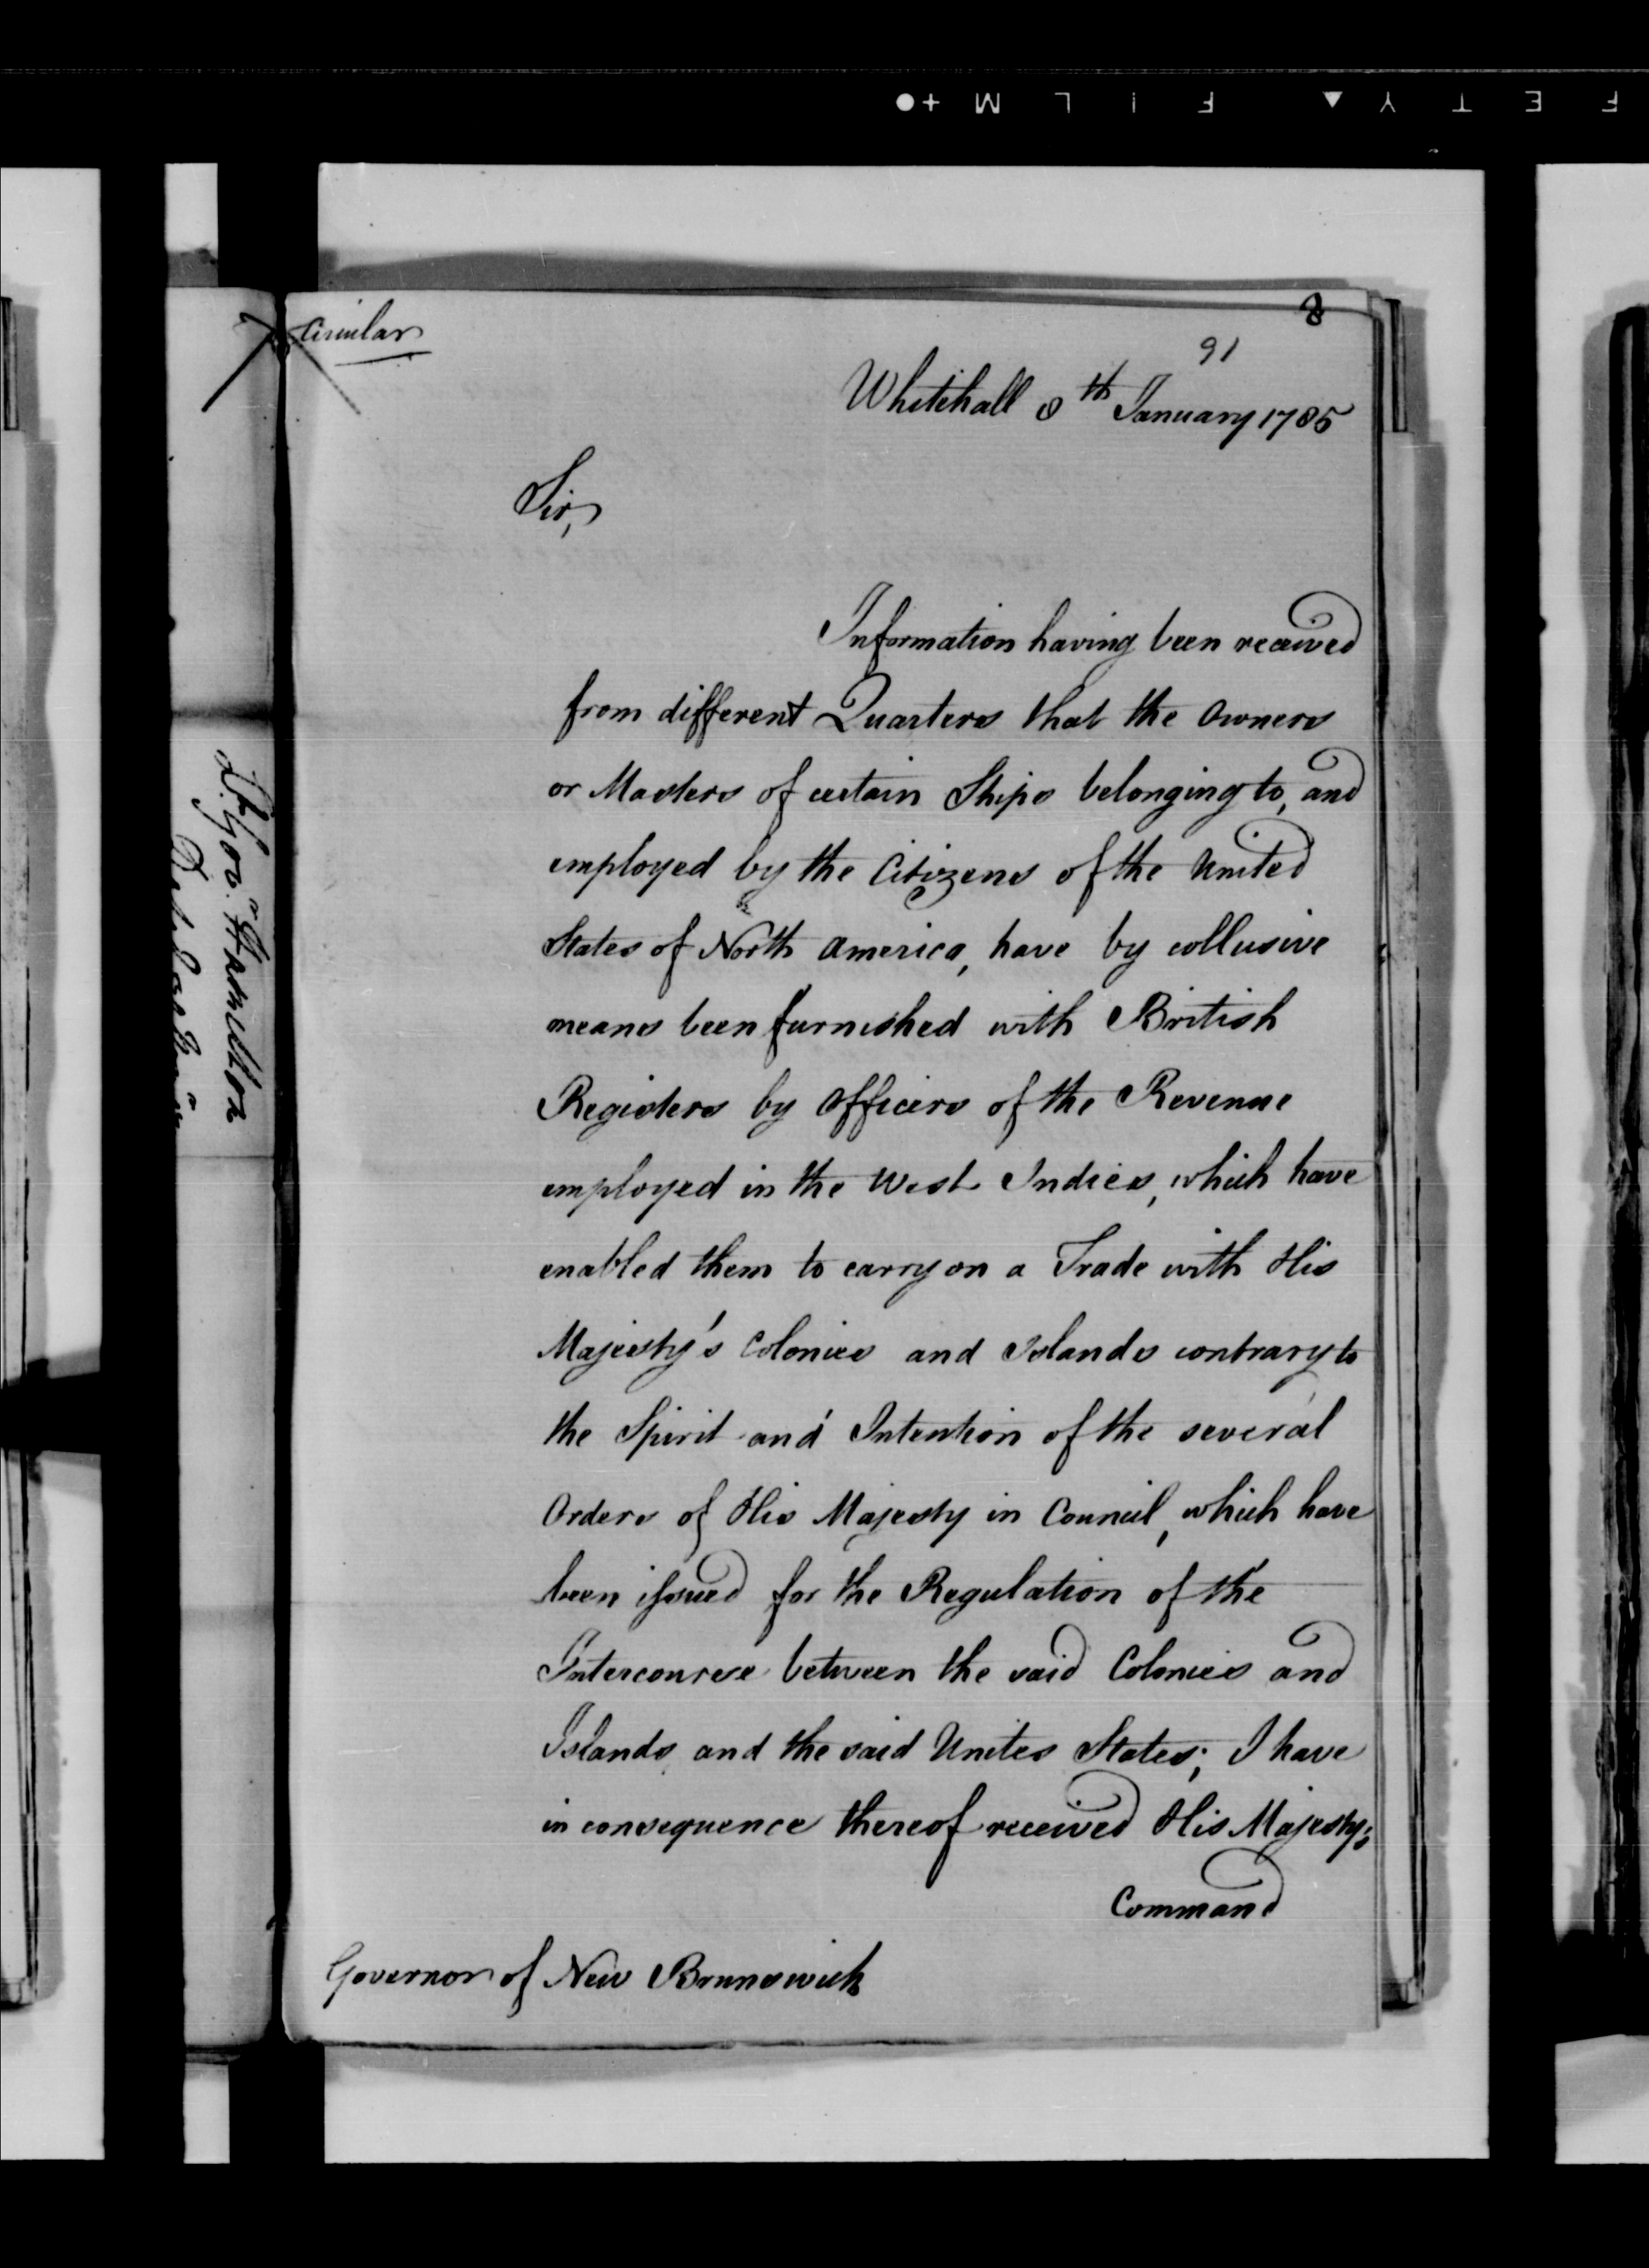 Circular
8
91
Whitehall 8th January 1785
Sir,
Information having been received
from different Quarters that the Owners
or Masters of certain Ships belonging to, and
employed by the Citizens of the United
States of North America, have by collusive
means been furnished with British
Registers by Officers of the Revenue
employed in the West Indies, which have
enabled them to carry on a Trade with His
Majesty's Colonies and Islands contrary to
the Spirit and Intention of the several
Orders of His Majesty in Council, which have
been issued for the Regulation of the
Intercourse between the said Colonies and
Islands and the said United States; I have
in consequence thereof received His Majesty's
Command
Governor of New Brunswick
Hamilton
F E T Y ▲ F I L M +●